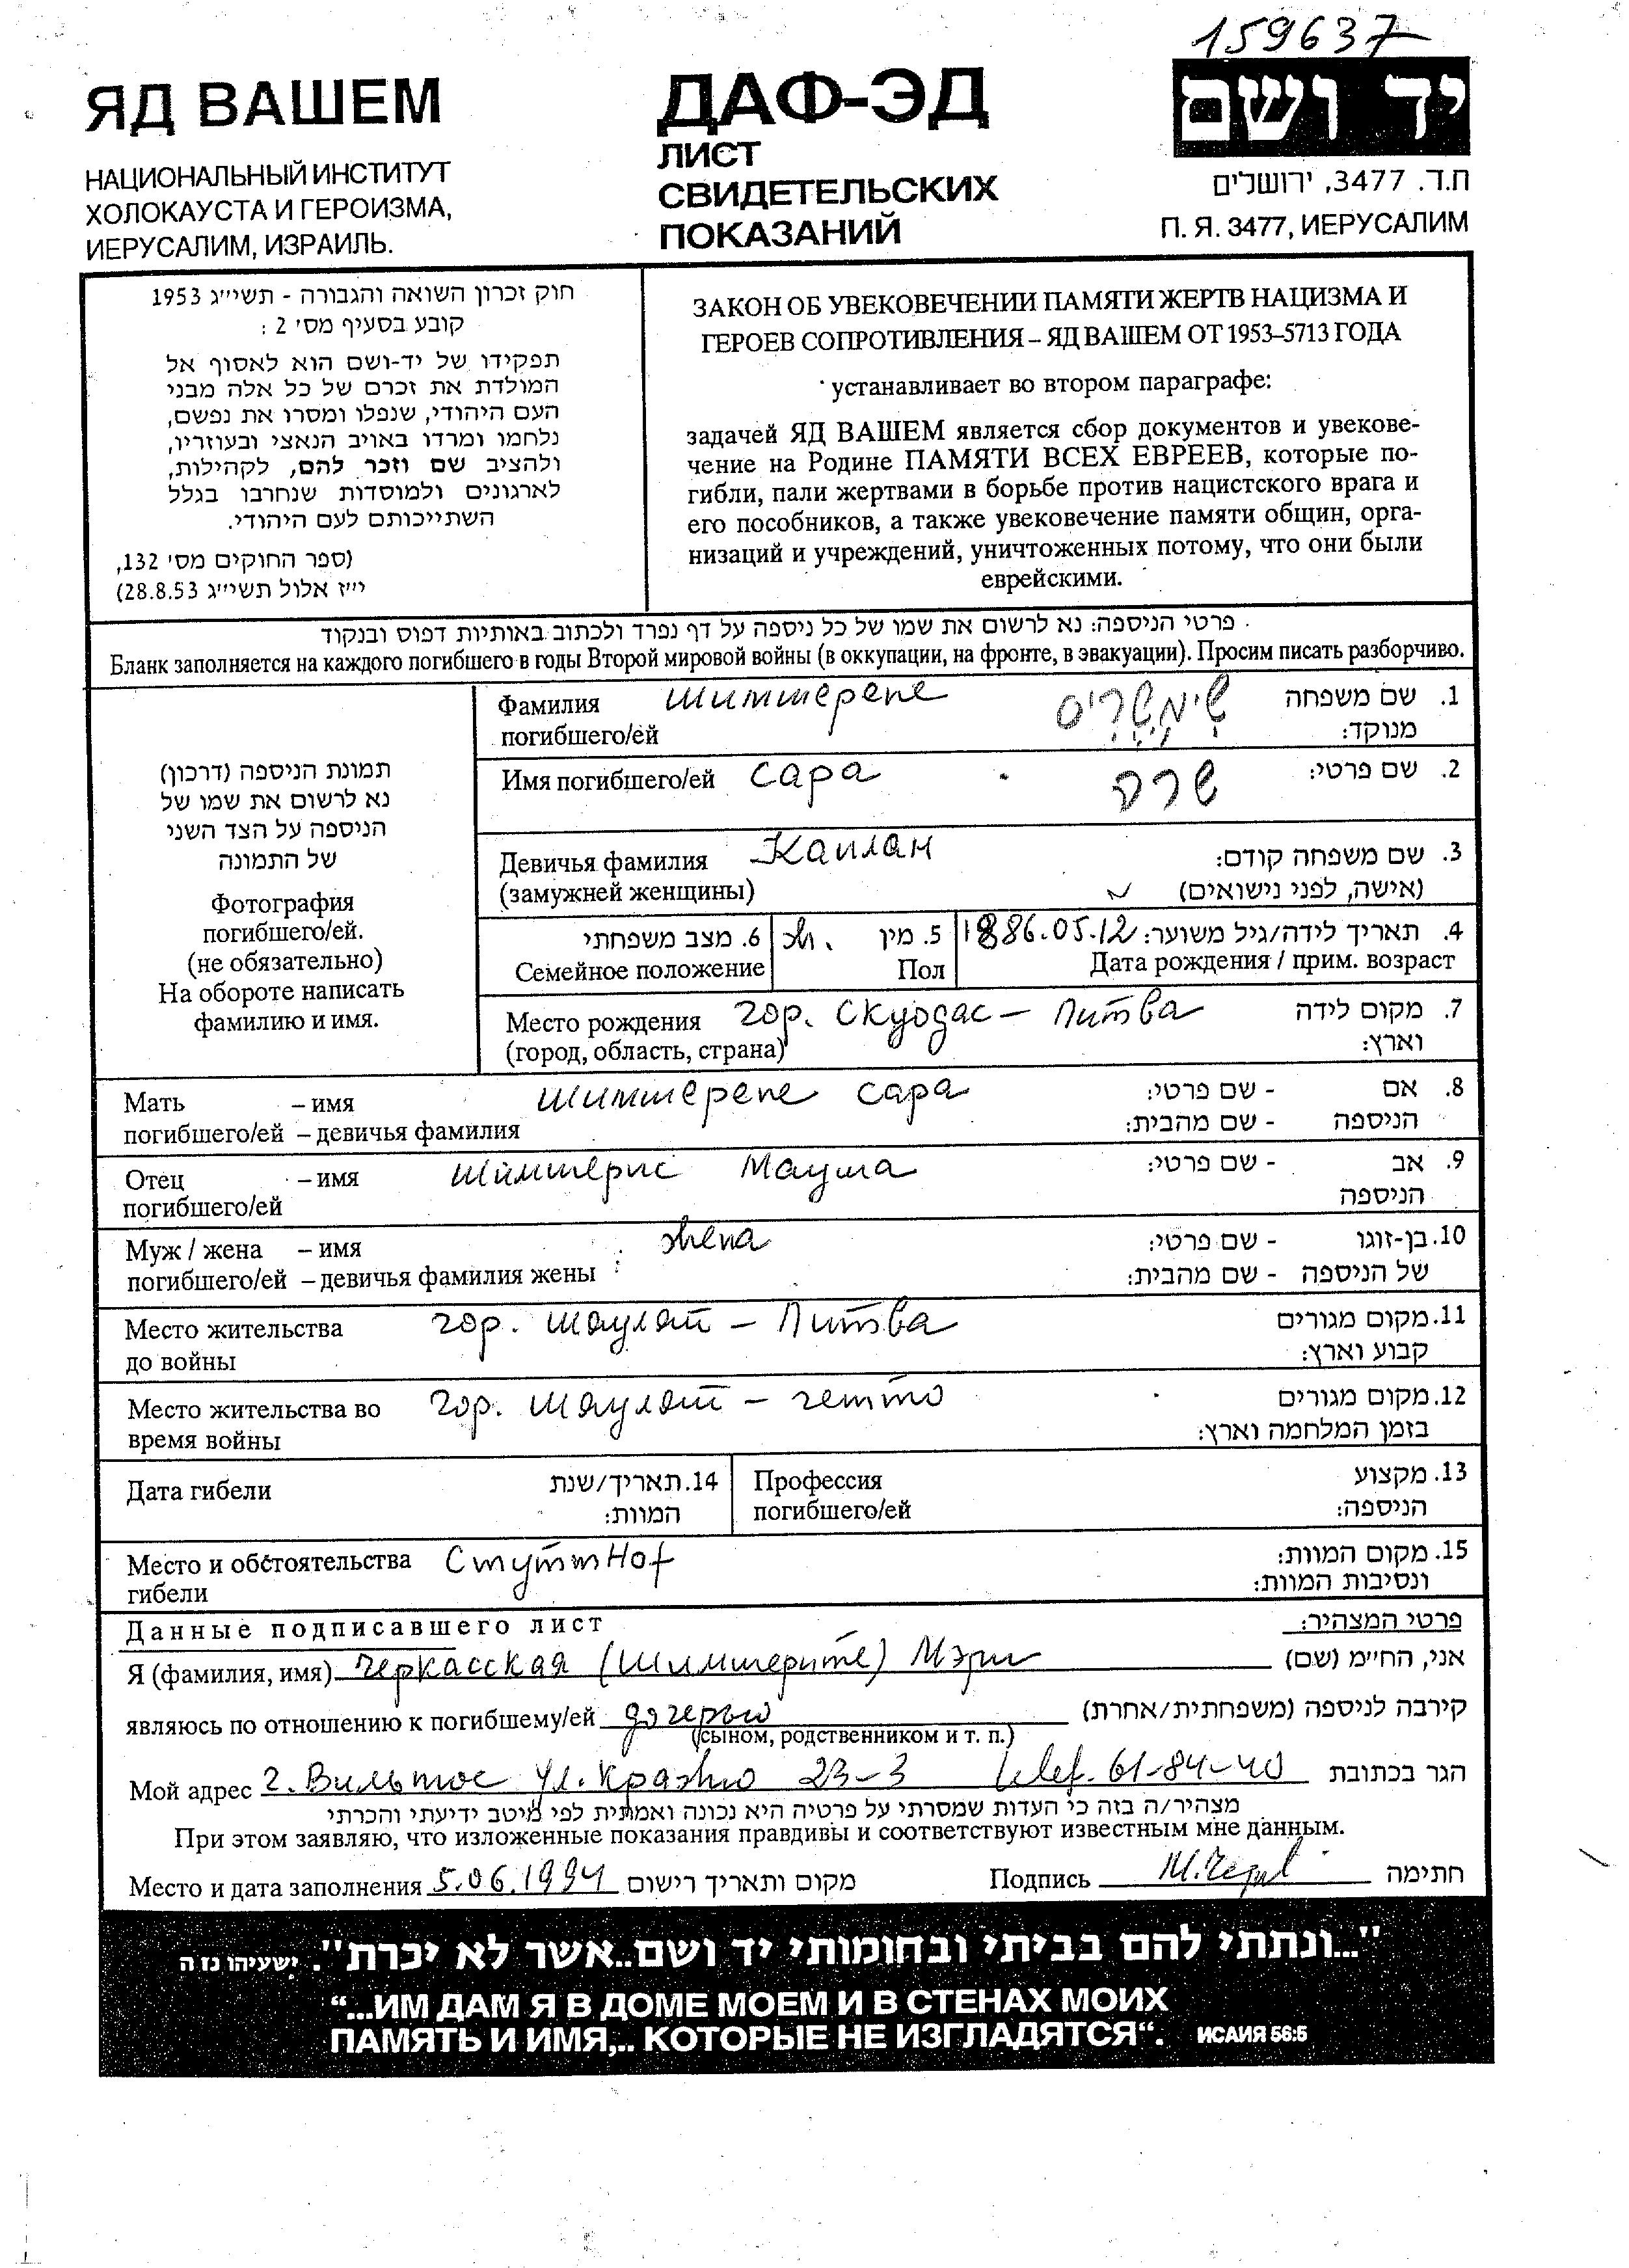 159637
ЯД ВАШЕМ
НАЦИОНАЛЬНЫЙ ИНСТИТУТ
ХОЛОКАУСТА И ГЕРОИЗМА,
ИЕРУСАЛИМ, ИЗРАИЛЬ.
ДАФ-ЭД
ЛИСТ
СВИДЕТЕЛЬСКИХ
ПОКАЗАНИЙ
יד ושם
ת.ד. 3477, ירושלים
П. Я. 3477, ИЕРУСАЛИМ
חוק זכרון השואה והגבורה - תשי״ג 1953
קובע בסעיף מס׳ 2 :
תפקידו של יד-ושם הוא לאסוף אל
המולדת את זכרם של כל אלה מבני
העם היהודי, שנפלו ומסרו את נפשם,
נלחמו ומרדו באויב הנאצי ובעוזריו,
ולהציב שם וזכר להם, לקהילות,
לארגונים ולמוסדות שנחרבו בגלל
השתייכותם לעם היהודי.
(ספר החוקים מס׳ 132,
י״ז אלול תשי״ג 28.8.53)
ЗАКОН ОБ УВЕКОВЕЧЕНИИ ПАМЯТИ ЖЕРТВ НАЦИЗМА И
ГЕРОЕВ СОПРОТИВЛЕНИЯ – ЯД ВАШЕМ ОТ 1953–5713 ГОДА
устанавливает во втором параграфе:
задачей ЯД ВАШЕМ является сбор документов и увекове-
чение на Родине ПАМЯТИ ВСЕХ ЕВРЕЕВ, которые по-
гибли, пали жертвами в борьбе против нацистского врага и
его пособников, а также увековечение памяти общин, орга-
низаций и учреждений, уничтоженных потому, что они были
еврейскими.
פרטי הניספה: נא לרשום את שמו של כל ניספה על דף נפרד ולכתוב באותיות דפוס ובנקוד
Бланк заполняется на каждого погибшего в годы Второй мировой войны (в оккупации, на фронте, в эвакуации). Просим писать разборчиво.
תמונת הניספה (דרכון)
נא לרשום את שמו של
הניספה על הצד השני
של התמונה
Фотография
погибшего/ей.
(не обязательно)
На обороте написать
фамилию и имя.
Фамилия Шимшерене שימשריס 1. שם משפחה
погибшего/ей מנוקד:
Имя погибшего/ей Сара שרה 2. שם פרטי:
Девичья фамилия Каплан 3. שם משפחה קודם:
(замужней женщины) (אישה, לפני נישואים)
6. מצב משפחתי ж. 5. מין 1886.05.12 4. תאריך לידה/גיל משוער:
Семейное положение Пол Дата рождения / прим. возраст
Место рождения гор. Скуодас – Литва 7. מקום לידה
(город, область, страна) וארץ:
Мать – имя Шимшерене Сара 8. אם - שם פרטי:
погибшего/ей – девичья фамилия הניספה - שם מהבית:
Отец – имя Шимшерис Мауша 9. אב - שם פרטי:
погибшего/ей הניספה
Муж / жена – имя жена 10. בן-זוגו - שם פרטי:
погибшего/ей – девичья фамилия жены של הניספה - שם מהבית:
Место жительства гор. Шауляй – Литва 11. מקום מגורים
до войны קבוע וארץ:
Место жительства во гор. Шауляй – гетто 12. מקום מגורים
время войны בזמן המלחמה וארץ:
Дата гибели 14. תאריך/שנת Профессия 13. מקצוע
המוות: погибшего/ей הניספה:
Место и обстоятельства СтуттHof 15. מקום המוות:
гибели ונסיבות המוות:
Данные подписавшего лист פרטי המצהיר:
Я (фамилия, имя) Черкасская (Шимшерите) Мэри אני, החיימ (שם)
являюсь по отношению к погибшему/ей дочерью קירבה לניספה (משפחתית/אחרת)
(сыном, родственником и т. п.)
Мой адрес г. Вильнюс ул. Кражю 23–3 telef. 61-84-40 הגר בכתובת
מצהיר/ה בזה כי העדות שמסרתי על פרטיה היא נכונה ואמתית לפי מיטב ידיעתי והכרתי
При этом заявляю, что изложенные показания правдивы и соответствуют известным мне данным.
Место и дата заполнения 5.06.1994 מקום ותאריך רישום Подпись חתימה
"...ונתתי להם בביתי ובחומותי יד ושם..אשר לא יכרת". ישעיהו נז ה
“...ИМ ДАМ Я В ДОМЕ МОЕМ И В СТЕНАХ МОИХ
ПАМЯТЬ И ИМЯ,.. КОТОРЫЕ НЕ ИЗГЛАДЯТСЯ“. ИСАИЯ 56:5